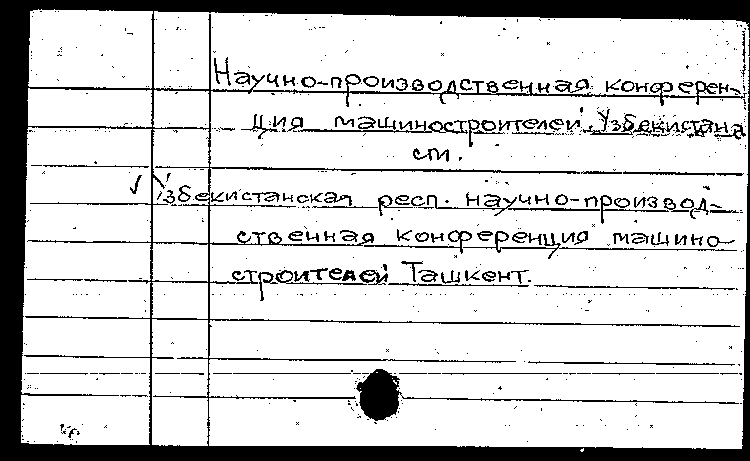 Научно-производственная конферен-
ция машиностроителей Узбекистана
см.
√ Узбекистанская респ. научно-производ-
ственная конференция машино-
строителей Ташкент.